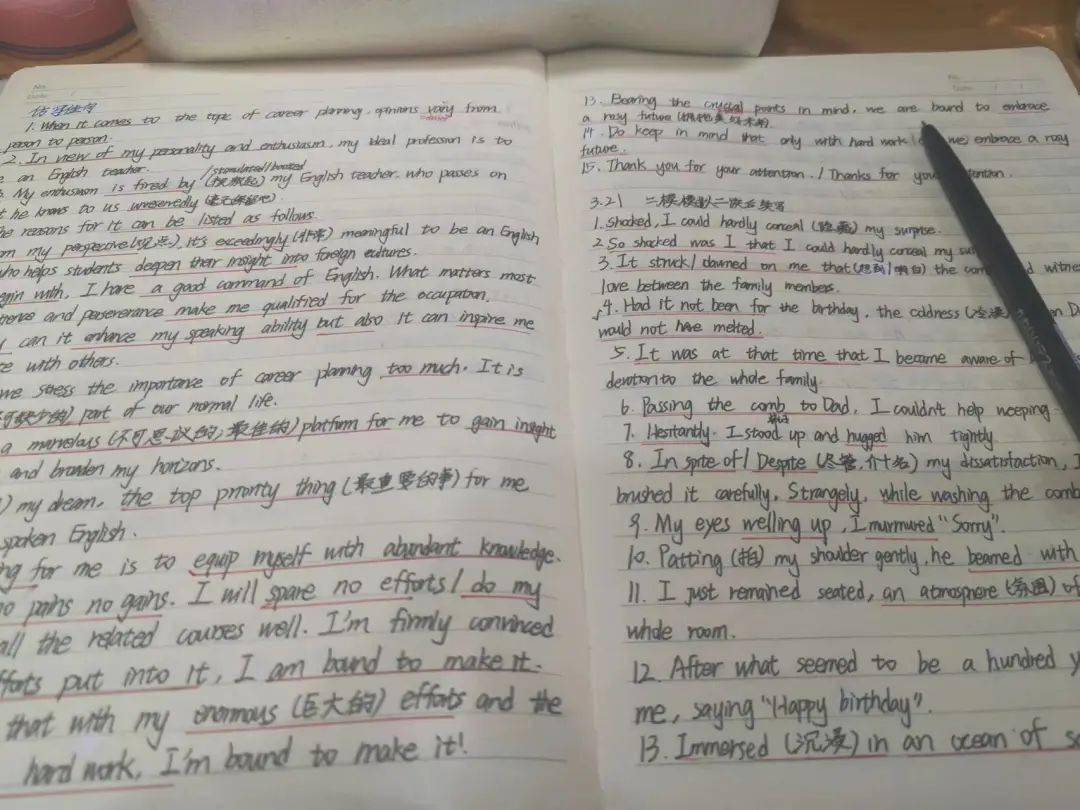 仿写佳句
1. When it comes to the topic of career planning, opinions vary from
person to person.
2. In view of my personality and enthusiasm, my ideal profession is to
an English teacher. /stimulated/boosted
My enthusiasm is fired by my English teacher, who passes on
he knows to us unreservedly
he reasons for it can be listed as follows.
my perspective(观点), it's exceedingly(非常) meaningful to be an English
who helps students deepen their insight into foreign cultures.
egin with, I have a good command of English. What matters most
and perseverance make me qualified for the occupation.
can it enhance my speaking ability but also it can inspire me
with others.
we stress the importance of career planning too much. It is
可缺少的) part of our normal life.
a marvelous (不可思议的;最佳的) platform for me to gain insight
and broaden my horizons.
) my dream, the top priority thing (最重要的事) for me
spoken English.
ng for me is to equip myself with abundant knowledge.
o pains no gains. I will spare no efforts/ do my
all the related courses well. I'm firmly convinced
fforts put into it, I am bound to make it.
that with my enormous (巨大的) efforts and the
hard work, I'm bound to make it!
No.
Date
13. Bearing the crucial points in mind, we are bound to embrace
a rosy future
14. Do keep in mind that only with hard work we embrace a rosy
future.
15. Thank you for your attention. / Thanks for you ttention.
3.21 二模模拟二
1. Shocked, I could hardly conceal (隐藏) my surprise.
2. So shocked was I that I could hardly conceal my su
3. It struck/ dawned on me that(想到/明白) the com d witnes
love between the family members.
4. Had it not been for the birthday, the coldness n Da
would not have melted.
5. It was at that time that I became aware of
devotion to the whole family.
6. Passing the comb to Dad, I couldn't help weeping
7. Hesitantly I stood up and hugged him tightly
8. In spite of/ Despite (尽管,介+名) my dissatisfaction, I
brushed it carefully. Strangely, while washing the comb
9. My eyes welling up, I murmured "Sorry".
10. Patting (拍) my shoulder gently, he beamed with
11. I just remained seated, an atmosphere (氛围) of
whole room.
12. After what seemed to be a hundred y
me, saying "Happy birthday".
13. Immersed (沉浸) in an ocean of s